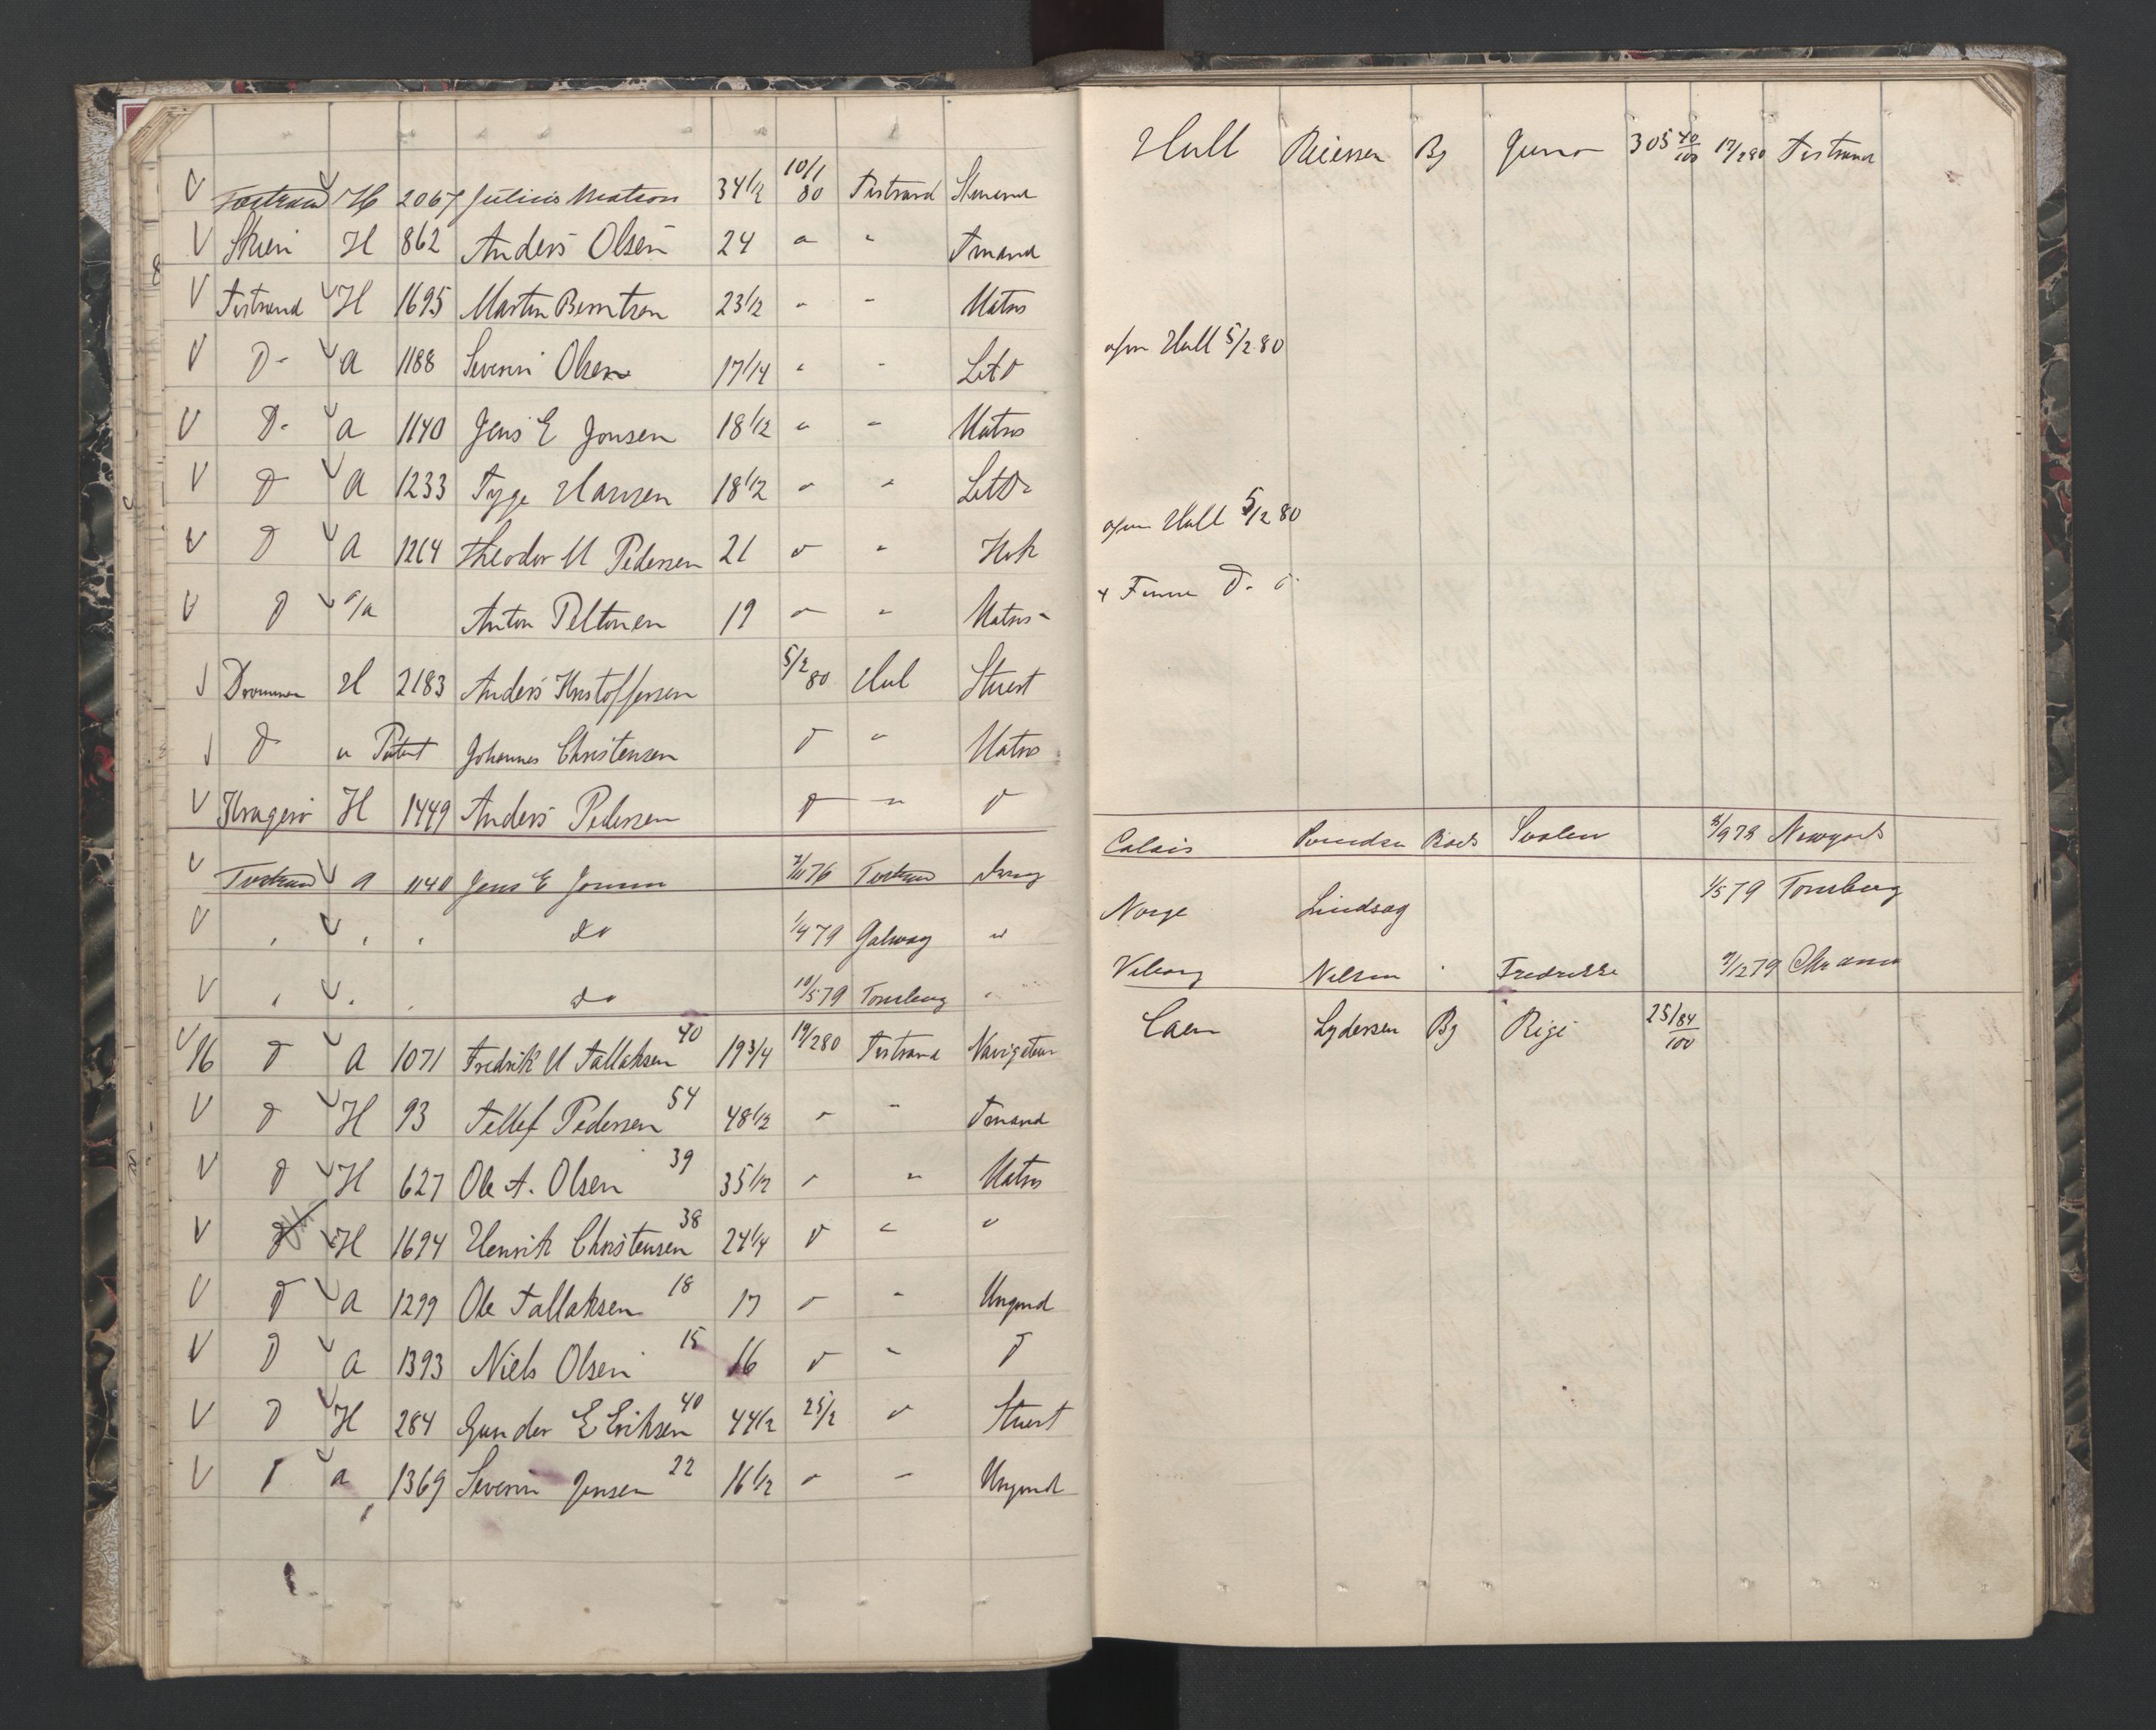 V Tvestrand V H 2067 Julius Matson 34 1/2 10/1 80 Tvestrand Stuemand
V Skien H 862 Anders Olsen 24 " " Tmand
V Tvestrand V H 1695 Martin Berntsen 23 1/2 " " Matros
V D- V a 1188 Severin Olsen 17 1/4 " " LetM
V D- V a 1140 Jens E Jonsen 18 1/2 " " Matros
V D V a 1233 Tyge Hansen 18 1/2 " " LetM
V D V a 1264 Theodor M Pedersen 21 " " Kok
V D V a/a Anton Peltonen 19 " " Matros
V Drammen H 2183 Anders Kristoffersen 5/2 80 Hul Stuert
V D u Patent Johannes Christensen D " Matros
V Kragerø H 1449 Anders Pedersen D " D
V Tvestrand V a 1140 Jens E Jonsen 76 Tvestrand
V " V " " do 1/4 79 Galway "
V " V " " do 10/5 79 Tonsberg "
V 16 D A 1071 Fredrik M Tallaksen 40 19 3/4 19/2 80 Tvestrand Navigateur
V D V H 93 Tellef Pedersen 54 48 1/2 " " Tmand
V D V H 627 Ole A. Olsen 39 35 1/2 " " Matros
V D V H 1694 Henrik Christensen 38 24 1/4 D " "
V D V a 1299 Ole Tallaksen 18 17 " " Ungmd
V D V a 1393 Niels Olsen 15 16 " " D
V D V H 284 Gunder E Eriksen 40 44 1/2 25/2 " Stuert
V D V a 1369 Severin Jensen 22 16 1/2 " " Ungmd
Hull Reiersen Bg Juno 305 40/100 17/2 80 Tvestrand
afm Hull 5/2 80
afm Hull 5/2 80
x Finne D. D
Calais 8/9 78 Newyork
Norge Lindsøg 1/5 79 Tonsberg
Nilsen " Fredrikke 9/12 79 Chrania
Caen Lydersen Bg Rigi 251 84/100